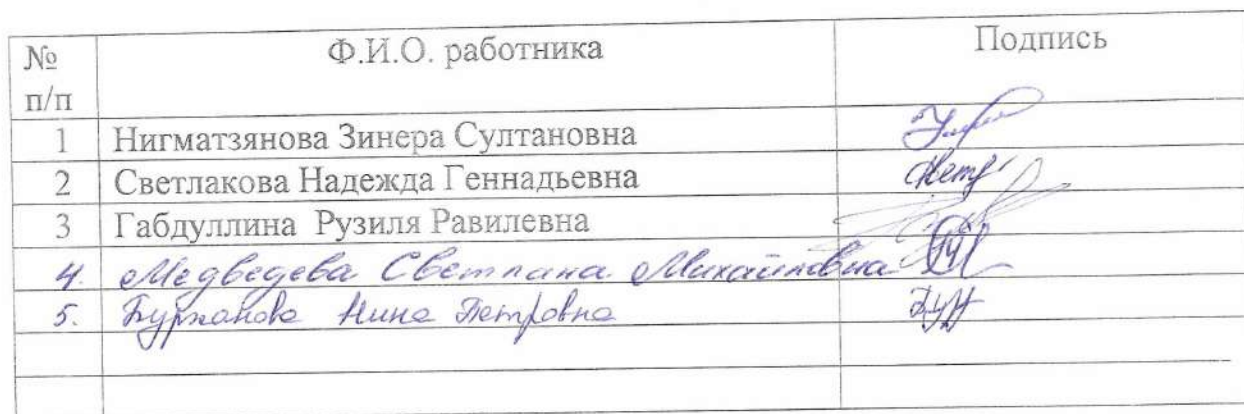 № п/п Ф.И.О. работника Подпись
1 Нигматзянова Зинера Султановна
2 Светлакова Надежда Геннадьевна
3 Габдуллина Рузиля Равилевна
4. Медведева Светлана Михайловна
5. Нина Петровна